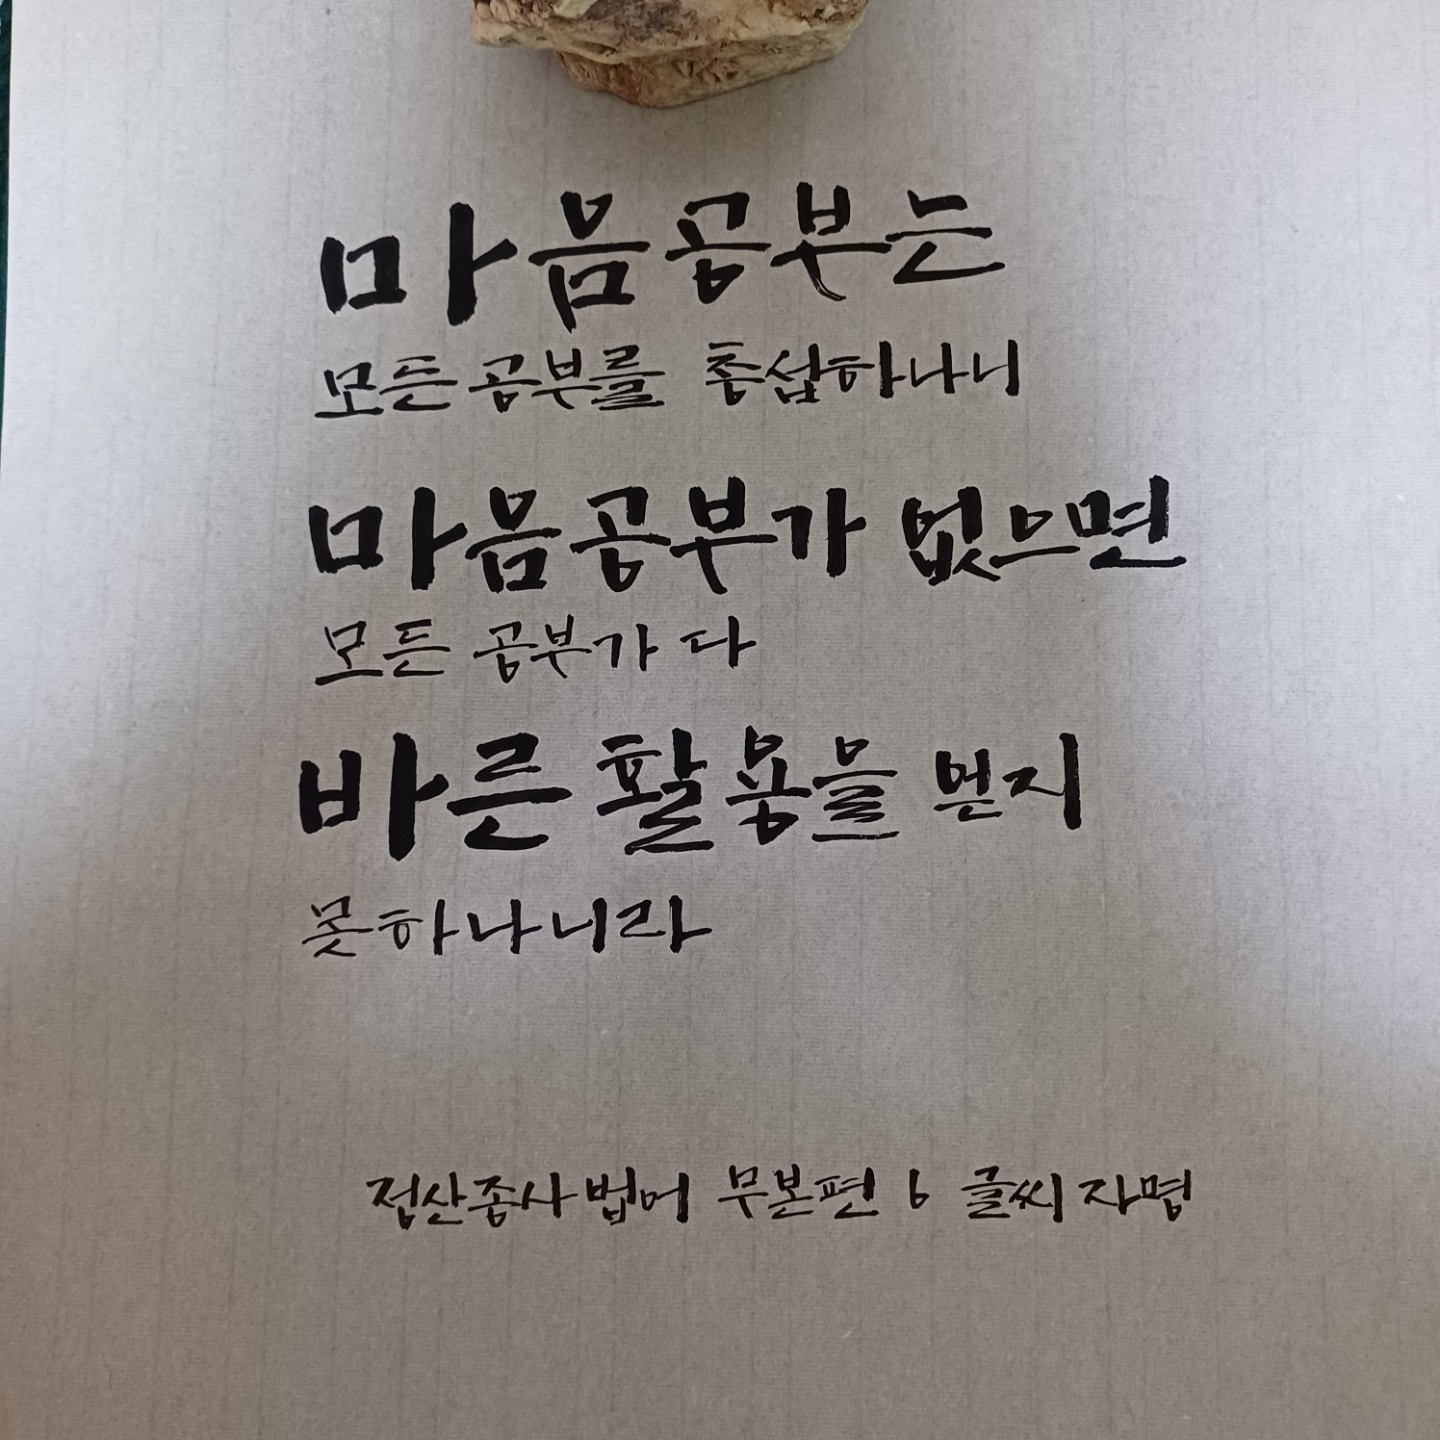 마음공부는
모든 공부를 총섭하나니
마음공부가 없으면
모든 공부가 다
바른 활용을 얻지
못하나니라
정산종사법어 무본편 6 글씨 자명